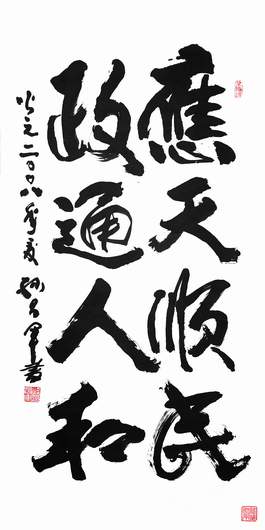 應天顺民
政通人和
公元二〇〇八年夏